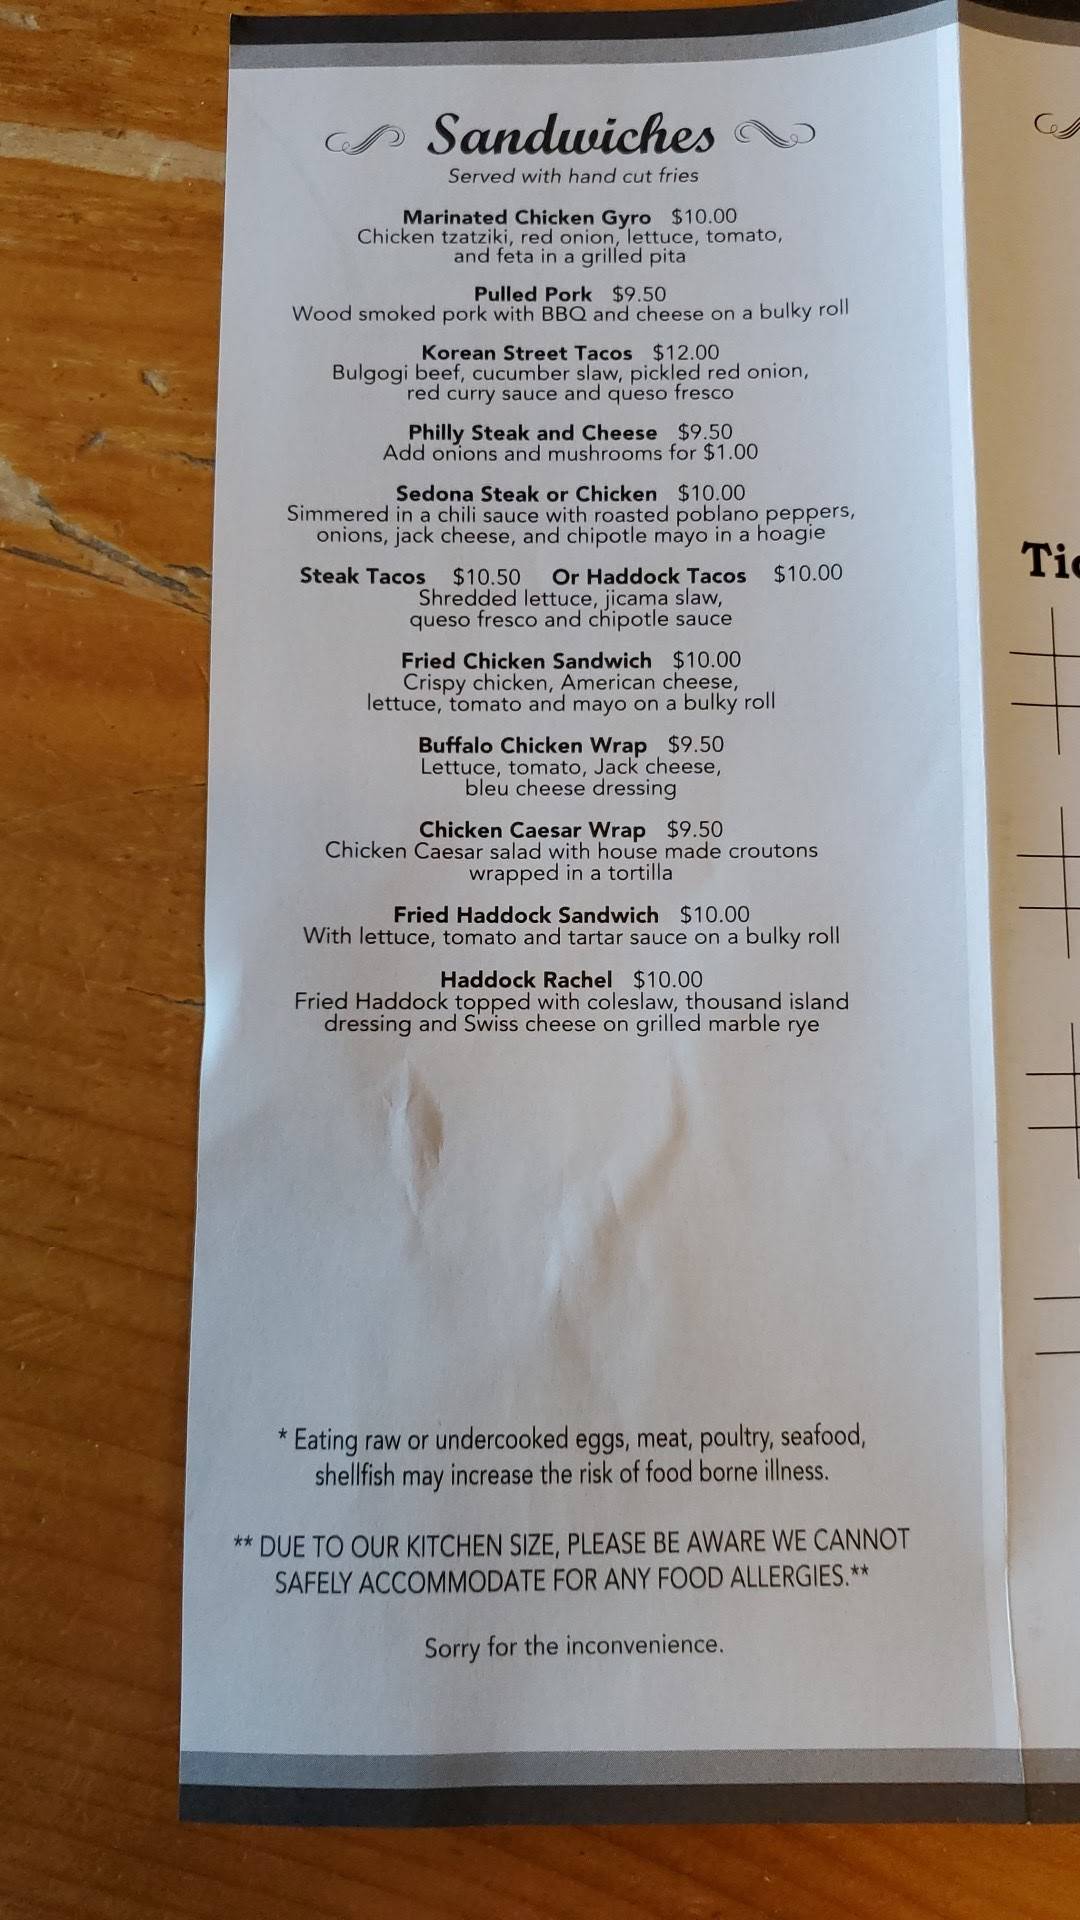 Sandwiches
Served with hand cut fries
Marinated Chicken Gyro $10.00
Chicken tzatziki, red onion, lettuce, tomato,
and feta in a grilled pita
Pulled Pork $9.50
Wood smoked pork with BBQ and cheese on a bulky roll
Korean Street Tacos $12.00
Bulgogi beef, cucumber slaw, pickled red onion,
red curry sauce and queso fresco
Philly Steak and Cheese $9.50
Add onions and mushrooms for $1.00
Sedona Steak or Chicken $10.00
Simmered in a chili sauce with roasted poblano peppers,
onions, jack cheese, and chipotle mayo in a hoagie
Steak Tacos $10.50 Or Haddock Tacos $10.00
Shredded lettuce, jicama slaw,
queso fresco and chipotle sauce
Fried Chicken Sandwich $10.00
Crispy chicken, American cheese,
lettuce, tomato and mayo on a bulky roll
Buffalo Chicken Wrap $9.50
Lettuce, tomato, Jack cheese,
bleu cheese dressing
Chicken Caesar Wrap $9.50
Chicken Caesar salad with house made croutons
wrapped in a tortilla
Fried Haddock Sandwich $10.00
With lettuce, tomato and tartar sauce on a bulky roll
Haddock Rachel $10.00
Fried Haddock topped with coleslaw, thousand island
dressing and Swiss cheese on grilled marble rye
* Eating raw or undercooked eggs, meat, poultry, seafood,
shellfish may increase the risk of food borne illness.
** DUE TO OUR KITCHEN SIZE, PLEASE BE AWARE WE CANNOT
SAFELY ACCOMMODATE FOR ANY FOOD ALLERGIES.**
Sorry for the inconvenience.